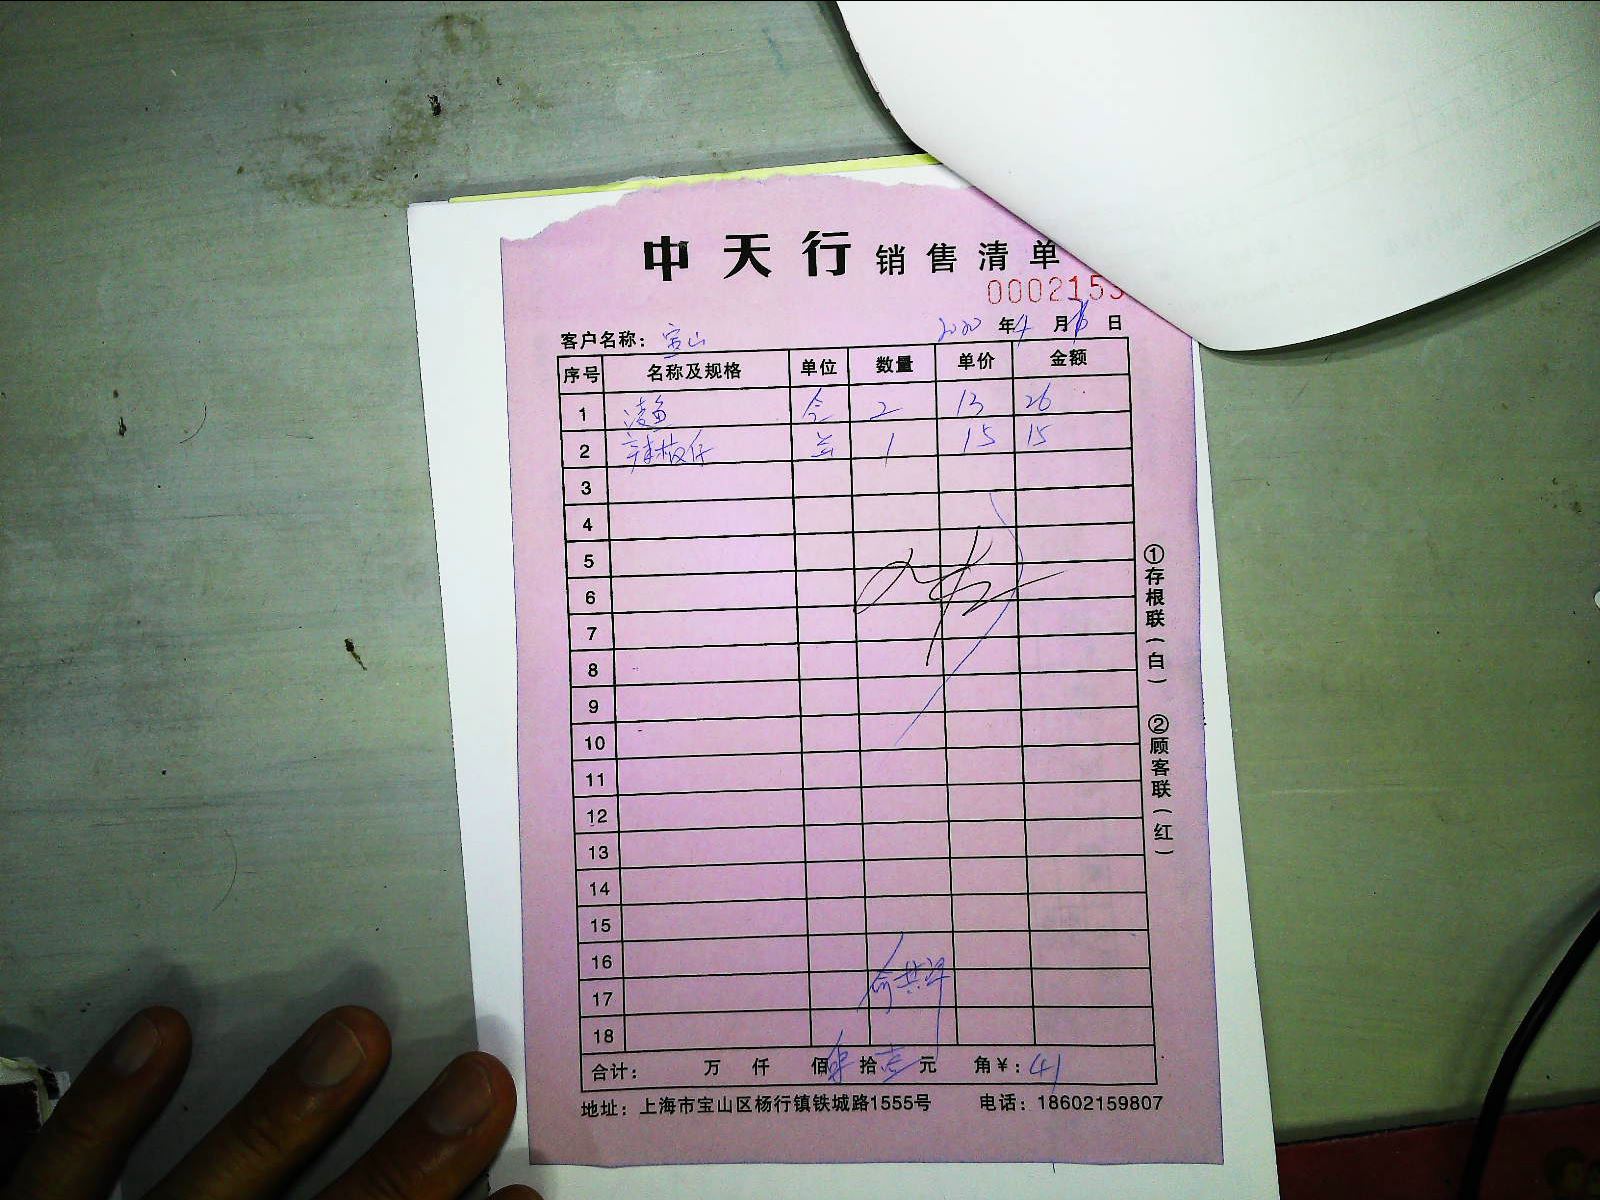 中天行 销售清单
000215
客户名称： 宝山 2020 年 4 月 日
序号 名称及规格 单位 数量 单价 金额
1 2 13 26
2 1 15 15
3
4
5
6
7
8
9
10
11
12
13
14
15
16
17
18
合计： 万 仟 佰 拾 壹 元 角 ¥：41
地址：上海市宝山区杨行镇铁城路1555号 电话：18602159807
①存根联（白） ②顾客联（红）